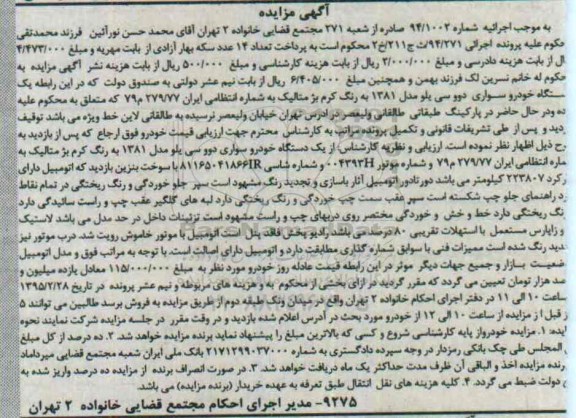 آگهی مزایده
به موجب اجرائیه شماره ۹۴/۱۰۰۲ صادره از شعبه ۲۷۱ مجتمع قضایی خانواده ۲ تهران آقای محمد حسن نورآئین فرزند محمدتقی
حکوم علیه پرونده اجرائی ۹۴/۲۷۱/ث ج/۲۱۱خ۲ محکوم است به پرداخت تعداد ۱۴ عدد سکه بهار آزادی از بابت مهریه و مبلغ ۴/۴۷۳/۰۰۰
ال از بابت هزینه دادرسی و مبلغ ۲/۰۰۰/۰۰۰ ریال از بابت هزینه کارشناسی و مبلغ ۵۰۰/۰۰۰ ریال از بابت هزینه نشر آگهی مزایده به
حکوم له خانم نسرین لک فرزند بهمن و همچنین مبلغ ۶/۴۰۵/۰۰۰ ریال از بابت نیم عشر دولتی به صندوق دولت که در این رابطه یک
ستگاه خودرو سواری دوو سی یلو مدل ۱۳۸۱ به رنگ کرم بژ متالیک به شماره انتظامی ایران ۲۷۹/۷۷م۷۹ که متعلق به محکوم علیه
ده ودر حال حاضر در پارکینگ طبقاتی طالقانی ولیعصر در آدرس تهران خیابان ولیعصر نرسیده به طالقانی لاین خط ویژه می باشد توقیف
ردید و پس از طی تشریفات قانونی و تکمیل پرونده مراتب به کارشناس محترم جهت ارزیابی قیمت خودرو فوق ارجاع که پس از بازدید به
رح ذیل اظهار نظر نموده است. ارزیابی و نظریه کارشناس: از یک دستگاه خودرو سواری دوو سی یلو مدل ۱۳۸۱ به رنگ کرم بژ متالیک به
ماره انتظامی ایران ۲۷۹/۷۷م۷۹ و شماره موتور ۰۰۴۳۹۳H و شماره شاسی ۸۱۱۶۵۰۴۱۸۶۶IR با سوخت بنزین بازدید که اتومبیل دارای
رکرد ۲۲۳۸۰۷ کیلومتر می باشد دور تادور اتومبیل آثار بازسازی و تجدید رنگ مشهود است سپر جلو خوردگی و رنگ ریختگی در تمام نقاط
رد راهنمای جلو چپ شکسته است سپر عقب سمت چپ خوردگی و رنگ ریختگی دارد لبه های گلگیر عقب چپ و راست سائیدگی دارد
نگ ریختگی دارد خط و خش و خوردگی مختصر روی دربهای چپ و راست مشهود است تزئینات داخل در حد مدل می باشد لاستیک
و زاپارس مستعمل با استهلاک تقریبی ۸۰ درصد می باشد رادیو پخش فاقد پنل است اتومبیل با موتور خاموش رویت شد. درب موتور نیز
دید رنگ شده است ممیزات فنی با سوابق شماره گذاری مطابقت دارد و اتومبیل دارای اصالت است. با توجه به مراتب فوق و مدل اتومبیل
ضعیت بازار و جمیع جهات دیگر موثر در این رابطه قیمت عادله روز خودرو مورد نظر به مبلغ ۱۱۵/۰۰۰/۰۰۰ معادل یازده میلیون و
صد هزار تومان تعیین می گردد که مقرر گردید در ازای بخشی از محکوم به و هزینه های مربوطه و نیم عشر پرونده در تاریخ ۱۳۹۵/۲/۲۸
ساعت ۱۰ الی ۱۱ در دفتر اجرای احکام خانواده ۲ تهران واقع در میدان ونک طبقه دوم از طریق مزایده به فروش برسد طالبین می توانند ۵
ز قبل از مزایده از ساعت ۱۰ الی ۱۲ از خودرو مورد بحث در آدرس اعلام شده بازدید و در وقت مقرر در جلسه مزایده شرکت نمایند نحوه
ایده: ۱. مزایده خودرواز پایه کارشناسی شروع و کسی که بالاترین مبلغ را پیشنهاد نماید برنده مزایده خواهد شد. ۲. ده درصد از کل مبلغ
المجلس طی چک بانکی رمزدار در وجه سپرده دادگستری به شماره ۲۱۷۱۲۹۹۰۳۷۰۰۰ بانک ملی ایران شعبه مجتمع قضایی میرداماد
رنده مزایده اخذ و الباقی آن ظرف مدت حداکثر یک ماه دریافت خواهد شد. ۳. در صورت انصراف برنده از مزایده ده درصد واریز شده به
دولت ضبط می گردد. ۴. کلیه هزینه های نقل انتقال طبق تعرفه به عهده خریدار (برنده مزایده) می باشد.
۹۲۷۵- مدیر اجرای احکام مجتمع قضایی خانواده ۲ تهران